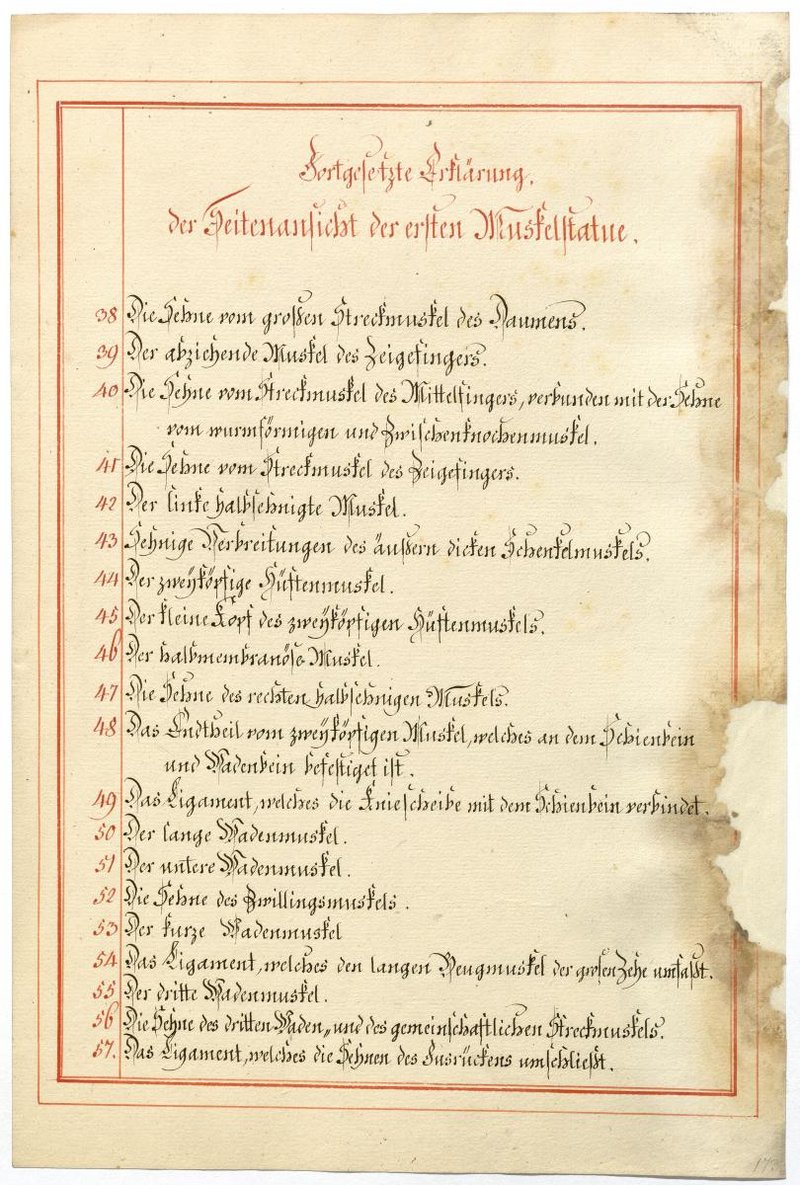 Fortgesetzte Erklärung.
der Seitenansicht der ersten Muskelstatue.
38 Die Sehne vom großen Streckmuskel des Daumens.
39 Der abziehende Muskel des Zeigefingers.
40 Die Sehne vom Streckmuskel des Mittelfingers, verbunden mit der Sehne
vom wurmförmigen und Zwischenknochenmuskel.
41 Die Sehne vom Streckmuskel des Zeigefingers.
42 Der linke halbsehnigte Muskel.
43 Sehnige Verbreitungen des äußern dicken Schenkelmuskels.
44 Der zweyköpfige Hüftenmuskel.
45 Der kleine Kopf des zweyköpfigen Hüftenmuskels.
46 Der halbmembranöse Muskel.
47 Die Sehne des rechten halbsehnigen Muskels.
48 Das Endtheil vom zweyköpfigen Muskel, welches an dem Schienbein
und Wadenbein befestiget ist.
49 Das Ligament, welches die Kniescheibe mit dem Schienbein verbindet.
50 Der lange Wadenmuskel.
51 Der untere Wadenmuskel.
52 Die Sehne des Zwillingsmuskels.
53 Der kurze Wadenmuskel
54 Das Ligament, welches den langen Beugmuskel der großen Zehe umfaßt.
55 Der dritte Wadenmuskel.
56 Die Sehne des dritten Waden„ und des gemeinschaftlichen Streckmuskels.
57. Das Ligament, welches die Sehnen des Fusrückens umschließt.